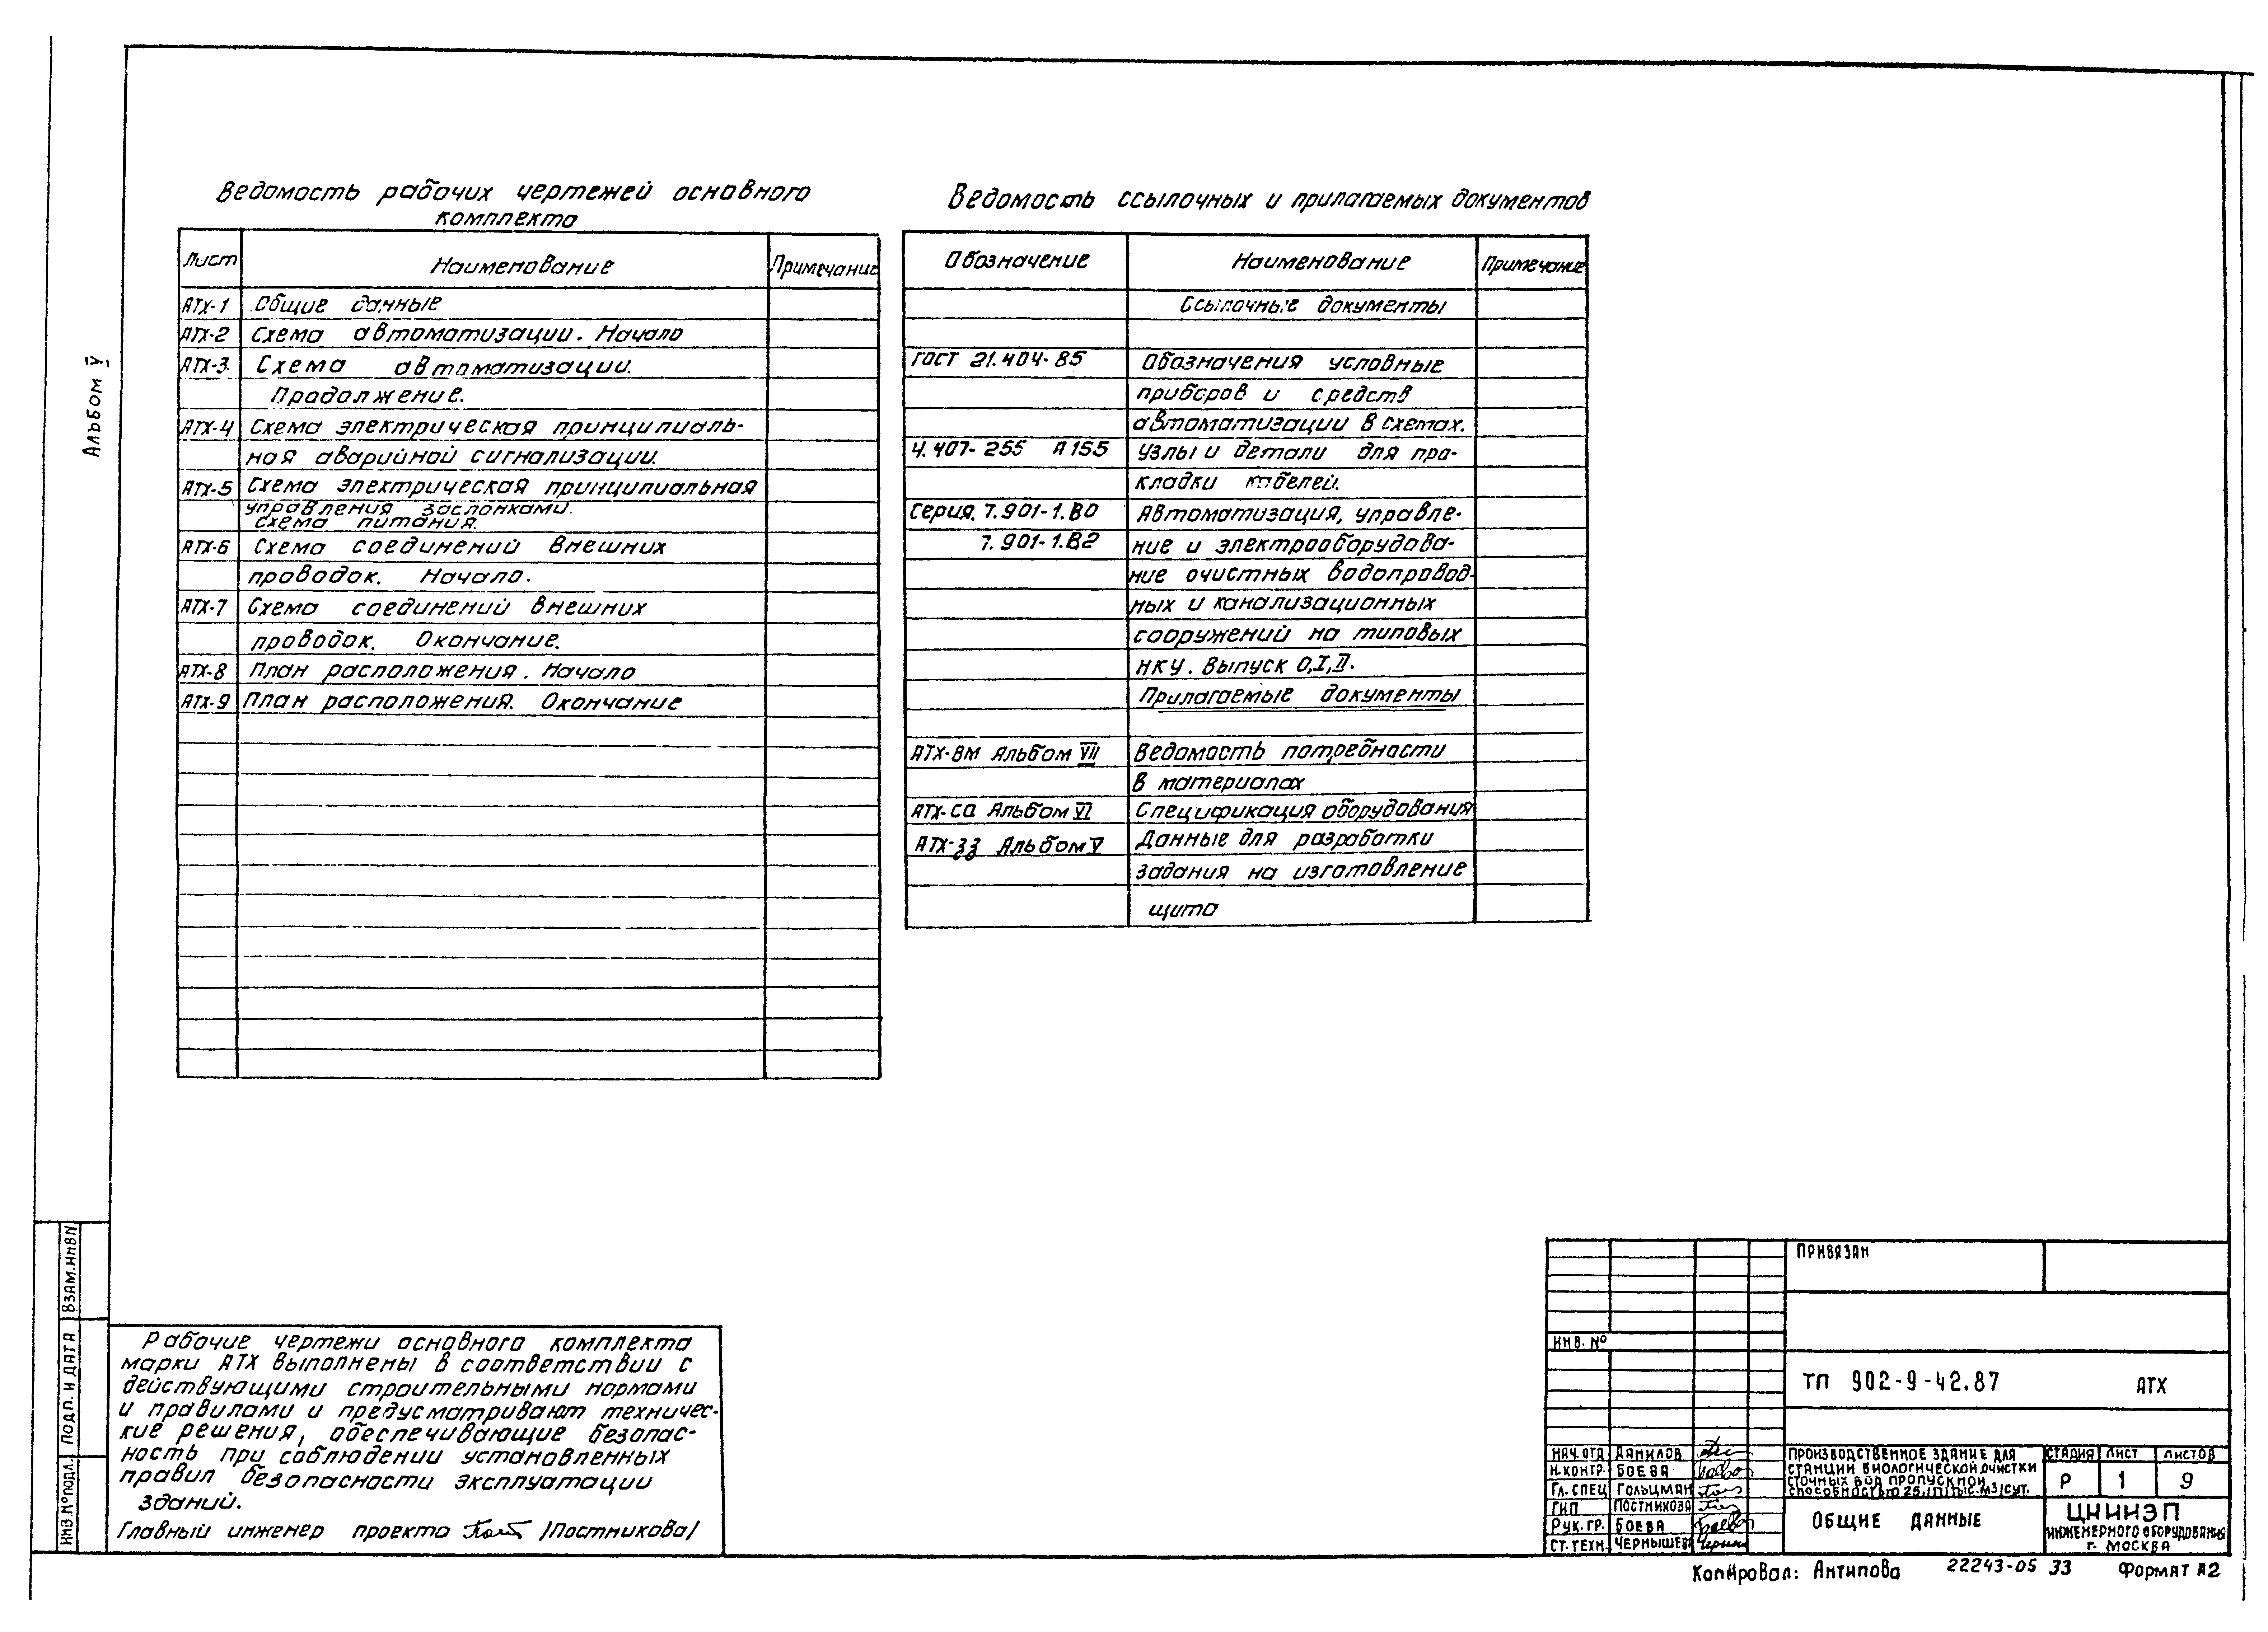 Альбом V
Ведомость рабочих чертежей основного
комплекта
Лист Наименование Примечание
АТХ-1 Общие данные
АТХ-2 Схема автоматизации. Начало
АТХ-3 Схема автоматизации.
Продолжение.
АТХ-4 Схема электрическая принципиаль-
ная аварийной сигнализации.
АТХ-5 Схема электрическая принципиальная
управления заслонками.
Схема питания.
АТХ-6 Схема соединений внешних
проводок. Начало.
АТХ-7 Схема соединений внешних
проводок. Окончание.
АТХ-8 План расположения. Начало
АТХ-9 План расположения. Окончание
Ведомость ссылочных и прилагаемых документов
Обозначение Наименование Примечание
Ссылочные документы
ГОСТ 21.404-85 Обозначения условные
приборов и средств
автоматизации в схемах.
4.407-255 А155 Узлы и детали для про-
кладки кабелей.
Серия. 7.901-1.В0 Автоматизация, управле-
7.901-1.В2 ние и электрооборудова-
ние очистных водопровод-
ных и канализационных
сооружений на типовых
НКУ. Выпуск 0, I, II.
Прилагаемые документы
АТХ-ВМ Альбом VII Ведомость потребности
в материалах
АТХ-СО Альбом VI Спецификация оборудования
АТХ-ЗЗ Альбом V Данные для разработки
задания на изготовление
щита
Рабочие чертежи основного комплекта
марки АТХ выполнены в соответствии с
действующими строительными нормами
и правилами и предусматривают техничес-
кие решения, обеспечивающие безопас-
ность при соблюдении установленных
правил безопасности эксплуатации
зданий.
Главный инженер проекта /Постникова/
ИНВ. № ПОДЛ. ПОДП. И ДАТА ВЗАМ. ИНВ N
ПРИВЯЗАН
ИНВ. №
ТП 902-9-42.87 АТХ
НАЧ. ОТД ДАНИЛОВ
Н. КОНТР. БОЕВА
ГЛ. СПЕЦ ГОЛЬЦМАН
ГИП ПОСТНИКОВА
РУК. ГР. БОЕВА
СТ. ТЕХН. ЧЕРНЫШЕВА
ПРОИЗВОДСТВЕННОЕ ЗДАНИЕ ДЛЯ
СТАНЦИИ БИОЛОГИЧЕСКОЙ ОЧИСТКИ
СТОЧНЫХ ВОД ПРОПУСКНОЙ
СПОСОБНОСТЬЮ ТЫС. М3/СУТ.
СТАДИЯ ЛИСТ ЛИСТОВ
Р 1 9
ОБЩИЕ ДАННЫЕ
ЦНИИЭП
ИНЖЕНЕРНОГО ОБОРУДОВАНИЯ
г. МОСКВА
Копировал: Антипова 22243-05 33 Формат А2